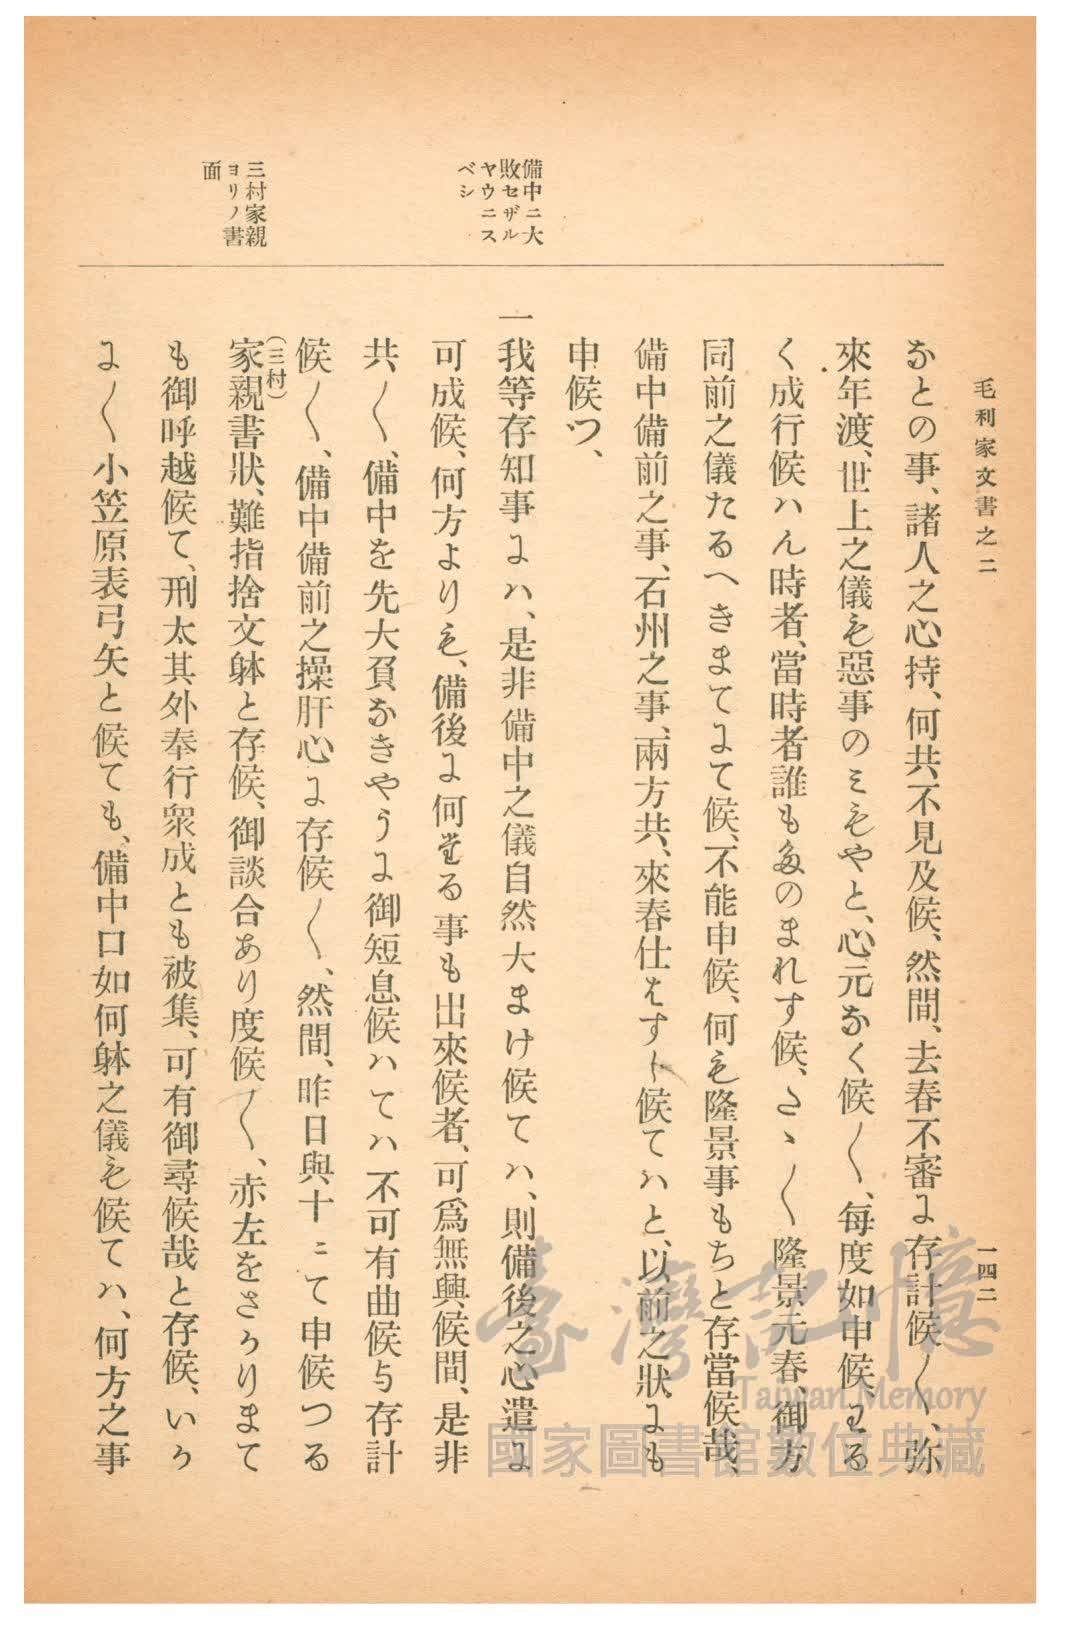 毛利家文書之二
一四二
備中ニ大
敗セザル
ヤウニス
ベシ
三村家親
ヨリノ書
面
なとの事、諸人之心持、何共不見及候、然間、去春不審よ存計候〳〵、弥
來年渡、世上之儀も惡事のミもやと、心元なく候〳〵、每度如申候、わる
く成行候ハん時者、當時者誰もたのまれす候、さゝ〳〵隆景元春御方
同前之儀たるへきまてよて候、不能申候、何も隆景事もちと存當候哉、
備中備前之事、石州之事、兩方共、來春仕はすト候てハと、以前之狀よも
申候つ、
一我等存知事よハ、是非備中之儀自然大まけ候てハ、則備後之心遣よ
可成候、何方よりも、備後よ何たる事も出來候者、可爲無興候間、是非
共〳〵、備中を先大負なきやうよ御短息候ハてハ不可有曲候与存計
候〳〵、備中備前之操肝心よ存候〳〵、然間、昨日與十ニて申候つる
(三村)
家親書狀、難指捨文躰と存候、御談合あり度候〳〵、赤左をさかりまて
も御呼越候て、刑太其外奉行衆成とも被集、可有御尋候哉と存候、いか
よ〳〵小笠原表弓矢と候ても、備中口如何躰之儀も候てハ、何方之事
臺灣記憶
Taiwan Memory
國家圖書館數位典藏